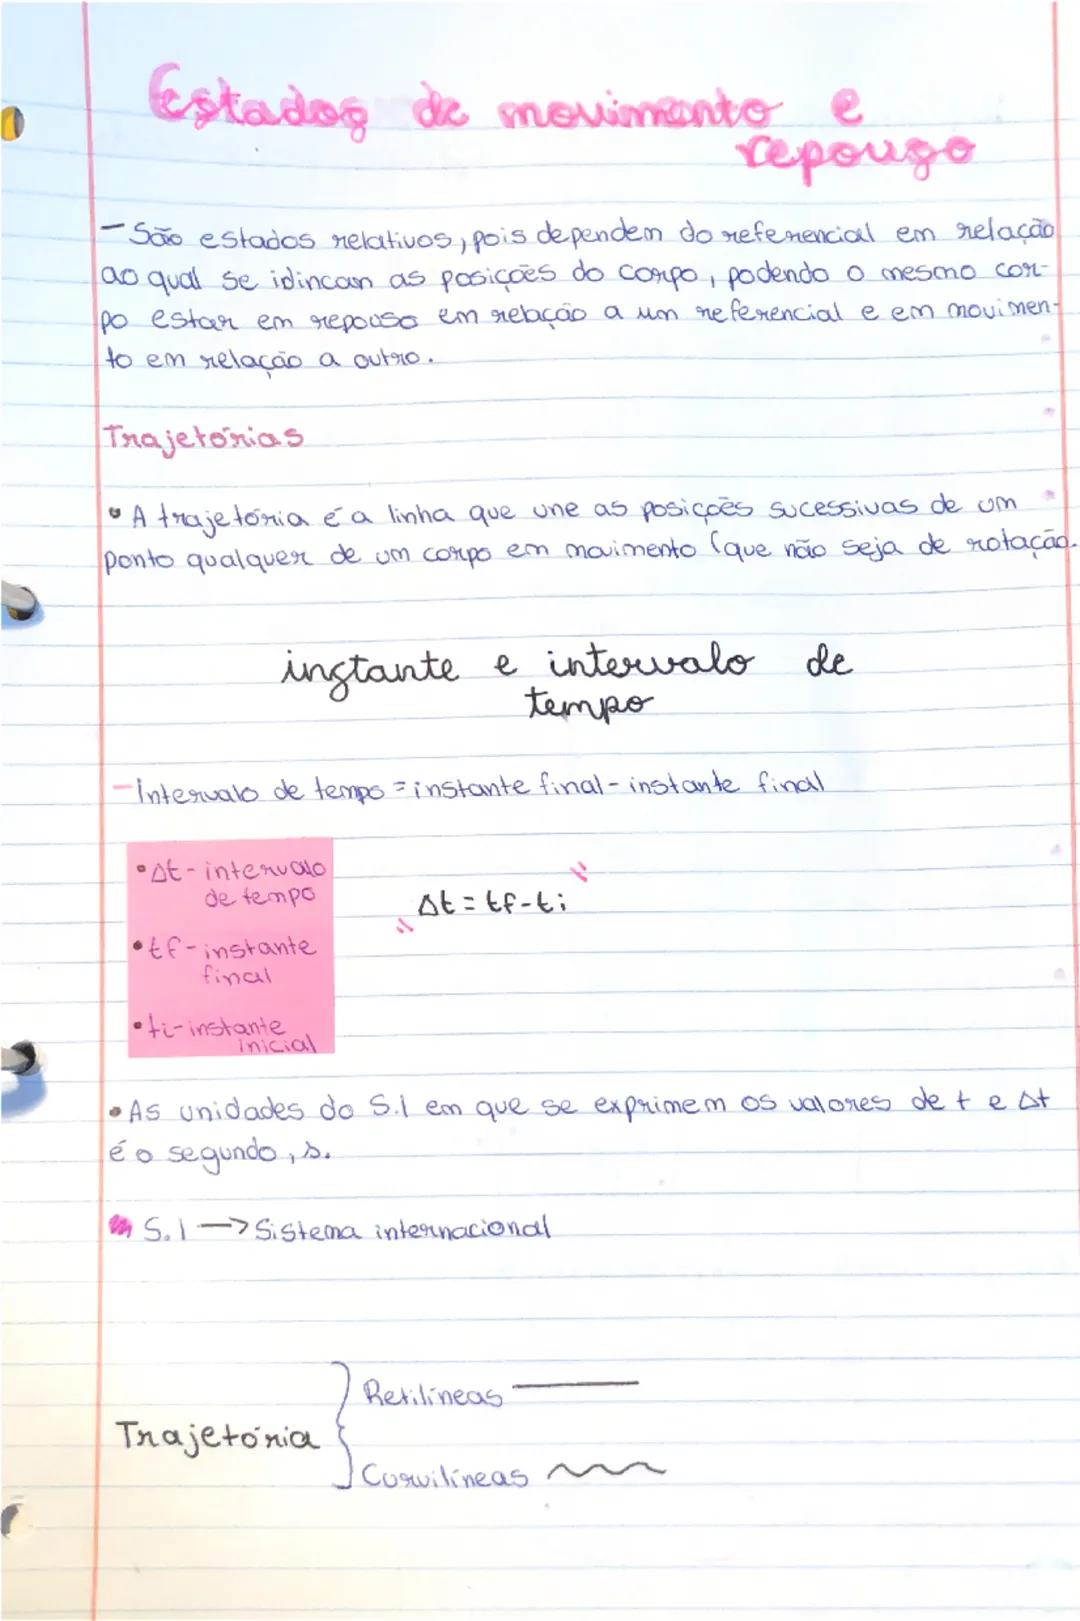 Estados de movimento e
repouso
- São estados relativos, pois dependem do referencial em relação
ao qual se idincam as posições do corpo, podendo o mesmo cor-
po estar em repouso em relação a um referencial e em movimen-
to em relação a outro.
Trajetórias
• A trajetória é a linha que une as posições sucessivas de um
ponto qualquer de um corpo em movimento (que não seja de rotação.
instante e intervalo de
tempo
- Intervalo de tempo = instante final - instante final
• Δt - intervalo
de tempo
• tf - instante
final
• ti - instante
inicial
Δt = tf - ti
• As unidades do S.I em que se exprimem os valores de t e Δt
é o segundo, s.
S.I → Sistema internacional
Trajetória
Retilíneas
Curvilíneas